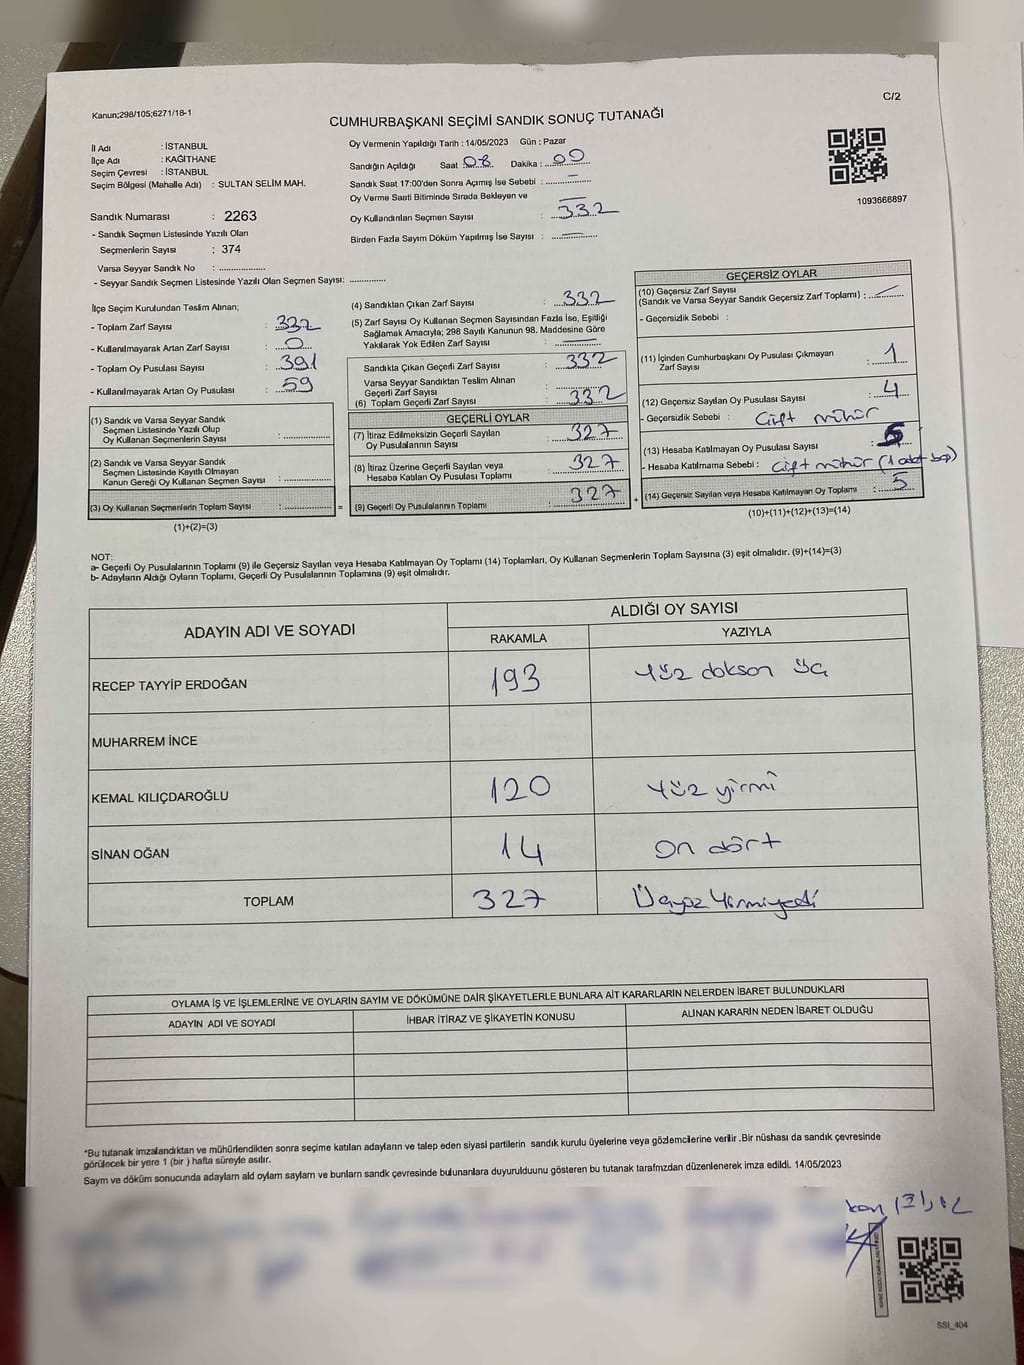 C/2
Kanun;298/105;6271/18-1
CUMHURBAŞKANI SEÇİMİ SANDIK SONUÇ TUTANAĞI
İl Adı : İSTANBUL
İlçe Adı : KAĞITHANE
Seçim Çevresi : İSTANBUL
Seçim Bölgesi (Mahalle Adı) : SULTAN SELİM MAH.
Sandık Numarası : 2263
- Sandık Seçmen Listesinde Yazılı Olan
Seçmenlerin Sayısı : 374
Varsa Seyyar Sandık No : ..................
- Seyyar Sandık Seçmen Listesinde Yazılı Olan Seçmen Sayısı: ..............
Oy Vermenin Yapıldığı Tarih : 14/05/2023 Gün : Pazar
Sandığın Açıldığı Saat 08 Dakika : 00
Sandık Saat 17:00'den Sonra Açımış İse Sebebi : —
Oy Verme Saati Bitiminde Sırada Bekleyen ve
Oy Kullandırılan Seçmen Sayısı : 332
Birden Fazla Sayım Döküm Yapılmış İse Sayısı : —
1093666897
İlçe Seçim Kurulundan Teslim Alınan;
- Toplam Zarf Sayısı : 332
- Kullanılmayarak Artan Zarf Sayısı : 0
- Toplam Oy Pusulası Sayısı : 391
- Kullanılmayarak Artan Oy Pusulası : 59
(1) Sandık ve Varsa Seyyar Sandık
Seçmen Listesinde Yazılı Olup
Oy Kullanan Seçmenlerin Sayısı : ..............
(2) Sandık ve Varsa Seyyar Sandık
Seçmen Listesinde Kayıtlı Olmayan
Kanun Gereği Oy Kullanan Seçmen Sayısı : ..............
(3) Oy Kullanan Seçmenlerin Toplam Sayısı : .............. =
(1)+(2)=(3)
(4) Sandıktan Çıkan Zarf Sayısı : 332
(5) Zarf Sayısı Oy Kullanan Seçmen Sayısından Fazla İse, Eşitliği
Sağlamak Amacıyla; 298 Sayılı Kanunun 98. Maddesine Göre
Yakılarak Yok Edilen Zarf Sayısı : —
Sandıkta Çıkan Geçerli Zarf Sayısı : 332
Varsa Seyyar Sandıktan Teslim Alınan
Geçerli Zarf Sayısı : ..............
(6) Toplam Geçerli Zarf Sayısı : 332
GEÇERLİ OYLAR
(7) İtiraz Edilmeksizin Geçerli Sayılan
Oy Pusulalarının Sayısı : 327
(8) İtiraz Üzerine Geçerli Sayılan veya
Hesaba Katılan Oy Pusulası Toplamı : 327
(9) Geçerli Oy Pusulalarının Toplamı : 327 +
GEÇERSİZ OYLAR
(10) Geçersiz Zarf Sayısı
(Sandık ve Varsa Seyyar Sandık Geçersiz Zarf Toplamı) : —
- Geçersizlik Sebebi :
(11) İçinden Cumhurbaşkanı Oy Pusulası Çıkmayan
Zarf Sayısı : 1
(12) Geçersiz Sayılan Oy Pusulası Sayısı : 4
- Geçersizlik Sebebi : Çift mühür
(13) Hesaba Katılmayan Oy Pusulası Sayısı :
- Hesaba Katılmama Sebebi : Çift mühür (1 adet boş)
(14) Geçersiz Sayılan veya Hesaba Katılmayan Oy Toplamı : 5
(10)+(11)+(12)+(13)=(14)
NOT:
a- Geçerli Oy Pusulalarının Toplamı (9) ile Geçersiz Sayılan veya Hesaba Katılmayan Oy Toplamı (14) Toplamları, Oy Kullanan Seçmenlerin Toplam Sayısına (3) eşit olmalıdır. (9)+(14)=(3)
b- Adayların Aldığı Oyların Toplamı, Geçerli Oy Pusulalarının Toplamına (9) eşit olmalıdır.
ADAYIN ADI VE SOYADI
ALDIĞI OY SAYISI
RAKAMLA YAZIYLA
RECEP TAYYİP ERDOĞAN 193 Yüz dokson üç
MUHARREM İNCE
KEMAL KILIÇDAROĞLU 120 Yüz yirmi
SİNAN OĞAN 14 On dört
TOPLAM 327 Üçyüz Yirmiyedi
OYLAMA İŞ VE İŞLEMLERİNE VE OYLARIN SAYIM VE DÖKÜMÜNE DAİR ŞİKAYETLERLE BUNLARA AİT KARARLARIN NELERDEN İBARET BULUNDUKLARI
ADAYIN ADI VE SOYADI İHBAR İTİRAZ VE ŞİKAYETİN KONUSU ALINAN KARARIN NEDEN İBARET OLDUĞU
*Bu tutanak imzalandıktan ve mühürlendikten sonra seçime katılan adayların ve talep eden siyasi partilerin sandık kurulu üyelerine veya gözlemcilerine verilir .Bir nüshası da sandık çevresinde
görülecek bir yere 1 (bir ) hafta süreyle asılır.
Saym ve döküm sonucunda adaylarn ald oylarn saylarn ve bunlarn sandk çevresinde bulunanlara duyurulduunu gösteren bu tutanak tarafmzdan düzenlenerek imza edildi. 14/05/2023
SSI_404